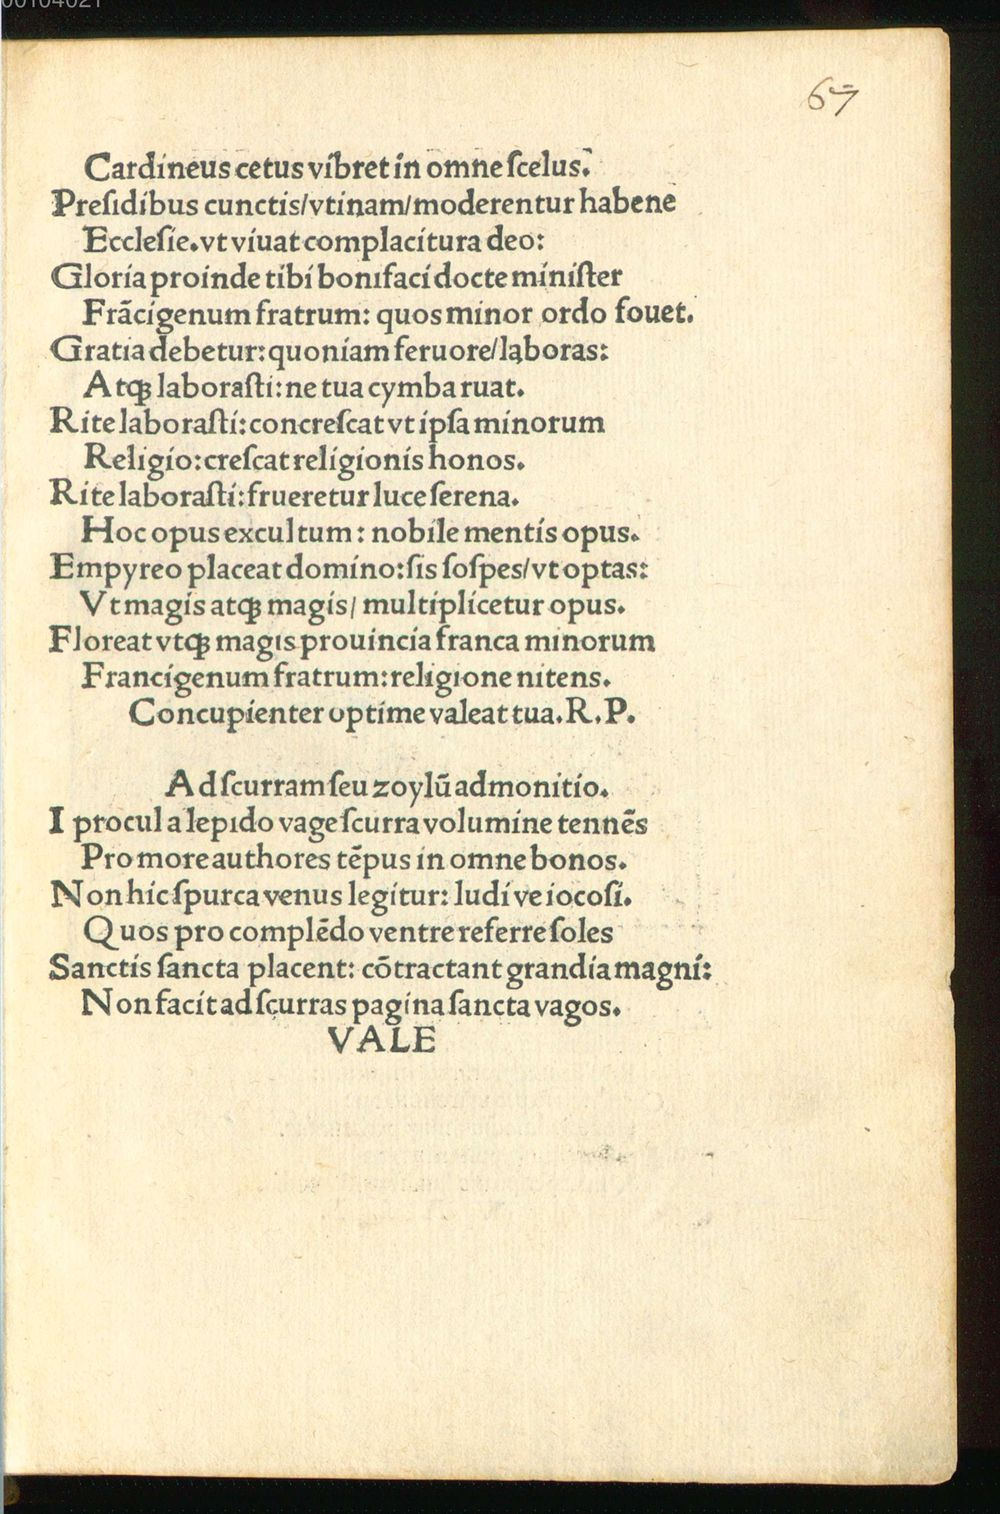 67
Cardineus cetus vibret in omne ſcelus.
Preſidibus cunctis/vtinam/moderentur habene
Eccleſie.vt viuat complacitura deo:
Gloria proinde tibi bonifaci docte miniſter
Frãcigenum fratrum: quos minor ordo fouet.
Gratia debetur:quoniam feruore/laboras:
Atqꝫ laboraſti:ne tua cymba ruat.
Rite laboraſti:concreſcat vt ipſa minorum
Religio:creſcat religionis honos.
Rite laboraſti:frueretur luce ſerena.
Hoc opus excultum: nobile mentis opus.
Empyreo placeat domino:ſis ſoſpes/vt optas:
Vt magis atqꝫ magis/ multiplicetur opus.
Floreat vtqꝫ magis prouincia franca minorum
Francigenum fratrum:religione nitens.
Concupienter optime valeat tua.R.P.
Ad ſcurram ſeu zoylũ admonitio.
I procul a lepido vage ſcurra volumine tennẽs
Pro more authores tẽpus in omne bonos.
Non hic ſpurca venus legitur: ludi ve iocoſi.
Quos pro complẽdo ventre referre ſoles
Sanctis ſancta placent: cõtractant grandia magni:
Non facit ad ſcurras pagina ſancta vagos.
VALE